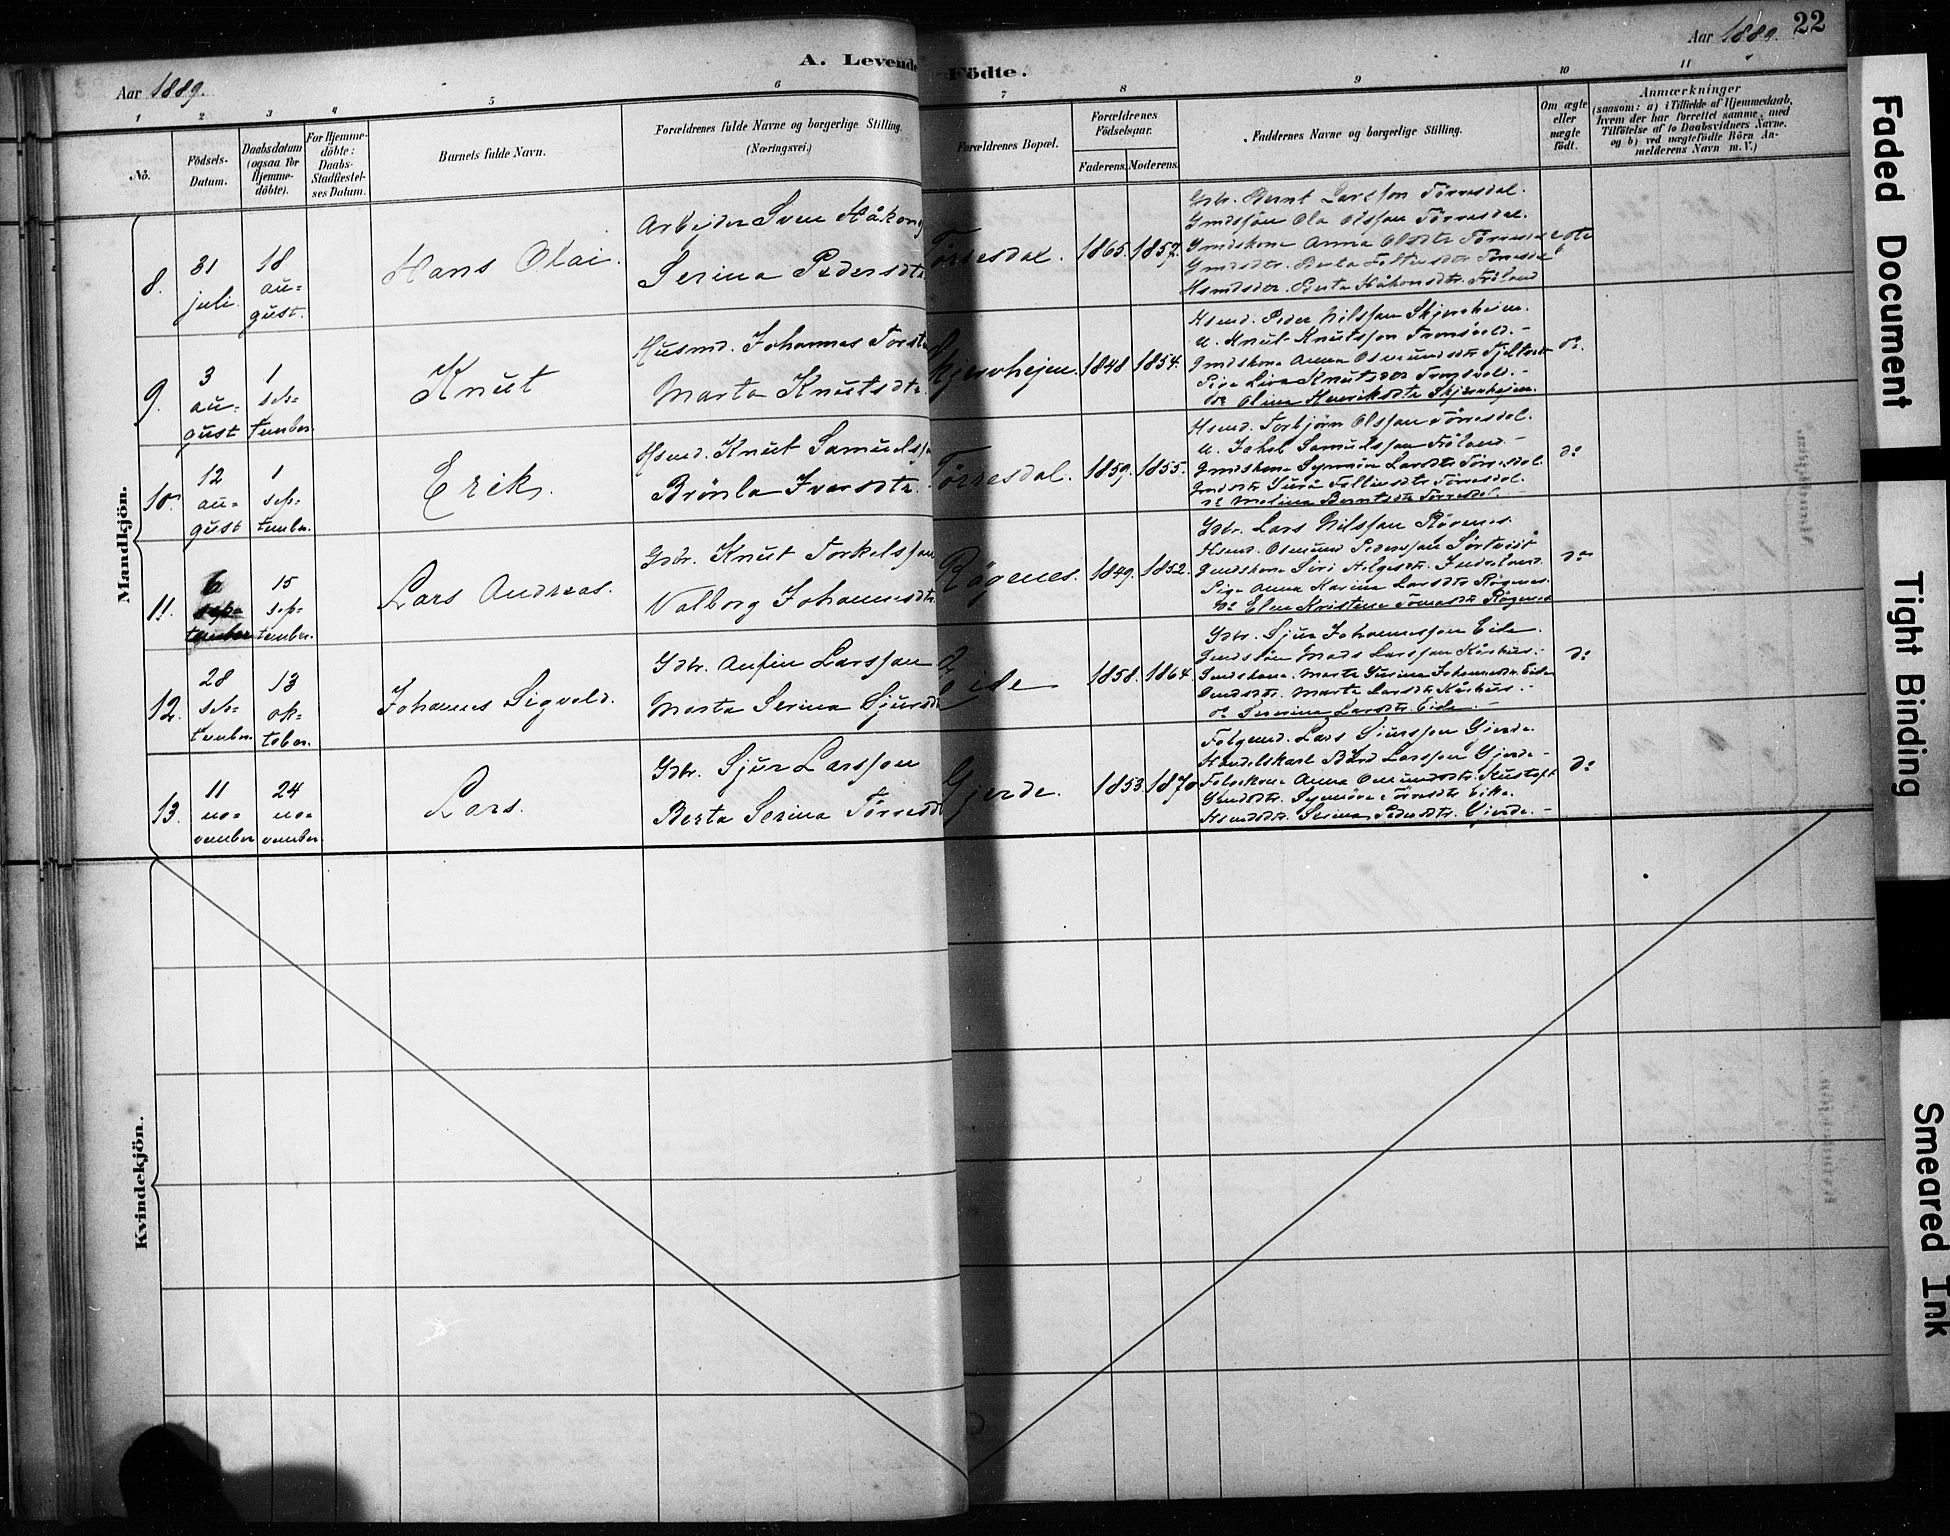 22
Aar 1889.
Aar 1889.
A. Levende Födte.
1 2 3 4 5 6 7 8 9 10 11
No.
Födsels-
Datum.
Daabsdatum
(ogsaa for
Hjemme-
döbte).
For Hjemme-
döbte:
Daabs-
Stadfæstel-
ses Datum.
Barnets fulde Navn.
Forældrenes fulde Navne og borgerlige Stilling.
(Næringsvei.)
Forældrenes Bopæl.
Forældrenes
Födselsaar.
Faderens. Moderens.
Faddernes Navne og borgerlige Stilling.
Om ægte
eller
uægte
födt.
Anmærkninger
(saasom: a) i Tilfælde af Hjemmedaab,
hvem der har forrettet samme, med
Tilföielse af to Daabsvidners Navne.
og b) ved uægtefödte Börn An-
melderens Navn m. V.)
Mandkjön.
8.
31
juli.
18
au-
gust.
Hans Olai.
Arbejder Sven Håkons
Serina Pedersdtr
Törresdal.
1865. 1857.
Gbr. Bernt Larsson Törresdal.
Gmdssön Ola Olsson Törresdal.
Gmdskone Anna Olsdtr Törresdal
Gmdsdtr. Berta
Hsmdsdtr. Berta Håkonsdtr. Fröland
ægte
9.
3
au-
gust
1
sep-
tember.
Knut
Husmd. Johannes Torst
Marta Knutsdtr.
Skjershejen.
1848 1854.
Hsmd. Peder Nilsson Skjersheim.
U. Knut Knutsson
Gmdskone Anna Osmundsdtr
Pige Knutsdtr
do Olina Henriksdtr Skjersheim.
do.
10.
12
au-
gust
1
sep-
tember.
Erik.
Hsmd. Knut Samuelss
Brönla Iversdtr.
Törresdal.
1859. 1855.
Hsmd. Torbjörn Olsson Törresdal.
U. Jakob Samuelsson Fröland.
Gmdskone Synnöve Larsdtr Törresdal.
Gmdsdtr Törresdal.
do Berntsdtr Törresdal.
do
11.
6
sep-
tember
15
sep-
tember.
Lars Andreas.
Gbr. Knut Torkelsson
Valborg Johannesdtr.
Rögenes.
1849. 1852.
Gbr. Lars Nilsson Rögenes.
Hsmd. Osmund Pedersson
Gmdskone Siri Helgesdtr.
Pige Anna Karina Larsdtr Rögenes.
do Eline Kristine Tomasdtr Rögenes
do
12.
28
sep-
tember.
13
ok-
tober.
Johannes Sigvald.
Gbr. Anfin Larsson
Marta Serina Sjursdtr
Eide
1858. 1864.
Gbr. Sjur Johannesson Eide.
Gmdssön Mads Larsson
Gmdskone. Marta Johannesdtr Eide
Gmdsdtr. Marta Larsdtr
do Larsdtr. Eide.
do
13.
11
no-
vember
24
no-
vember.
Lars.
Gbr. Sjur Larsson
Berta Serina Törresdtr
Gjerde.
1853. 1870
Fölgemd. Lars Sjursson Gjerde.
Handelskarl Bård Larsson Gjerde.
Anna Osmundsdtr.
Gmdsdtr. Synnöve Törresdtr
Hsmdsdtr. Serina Pedersdtr. Gjerde.
do
Kvindekjön.
Faded Document
Tight Binding
Smeared Ink